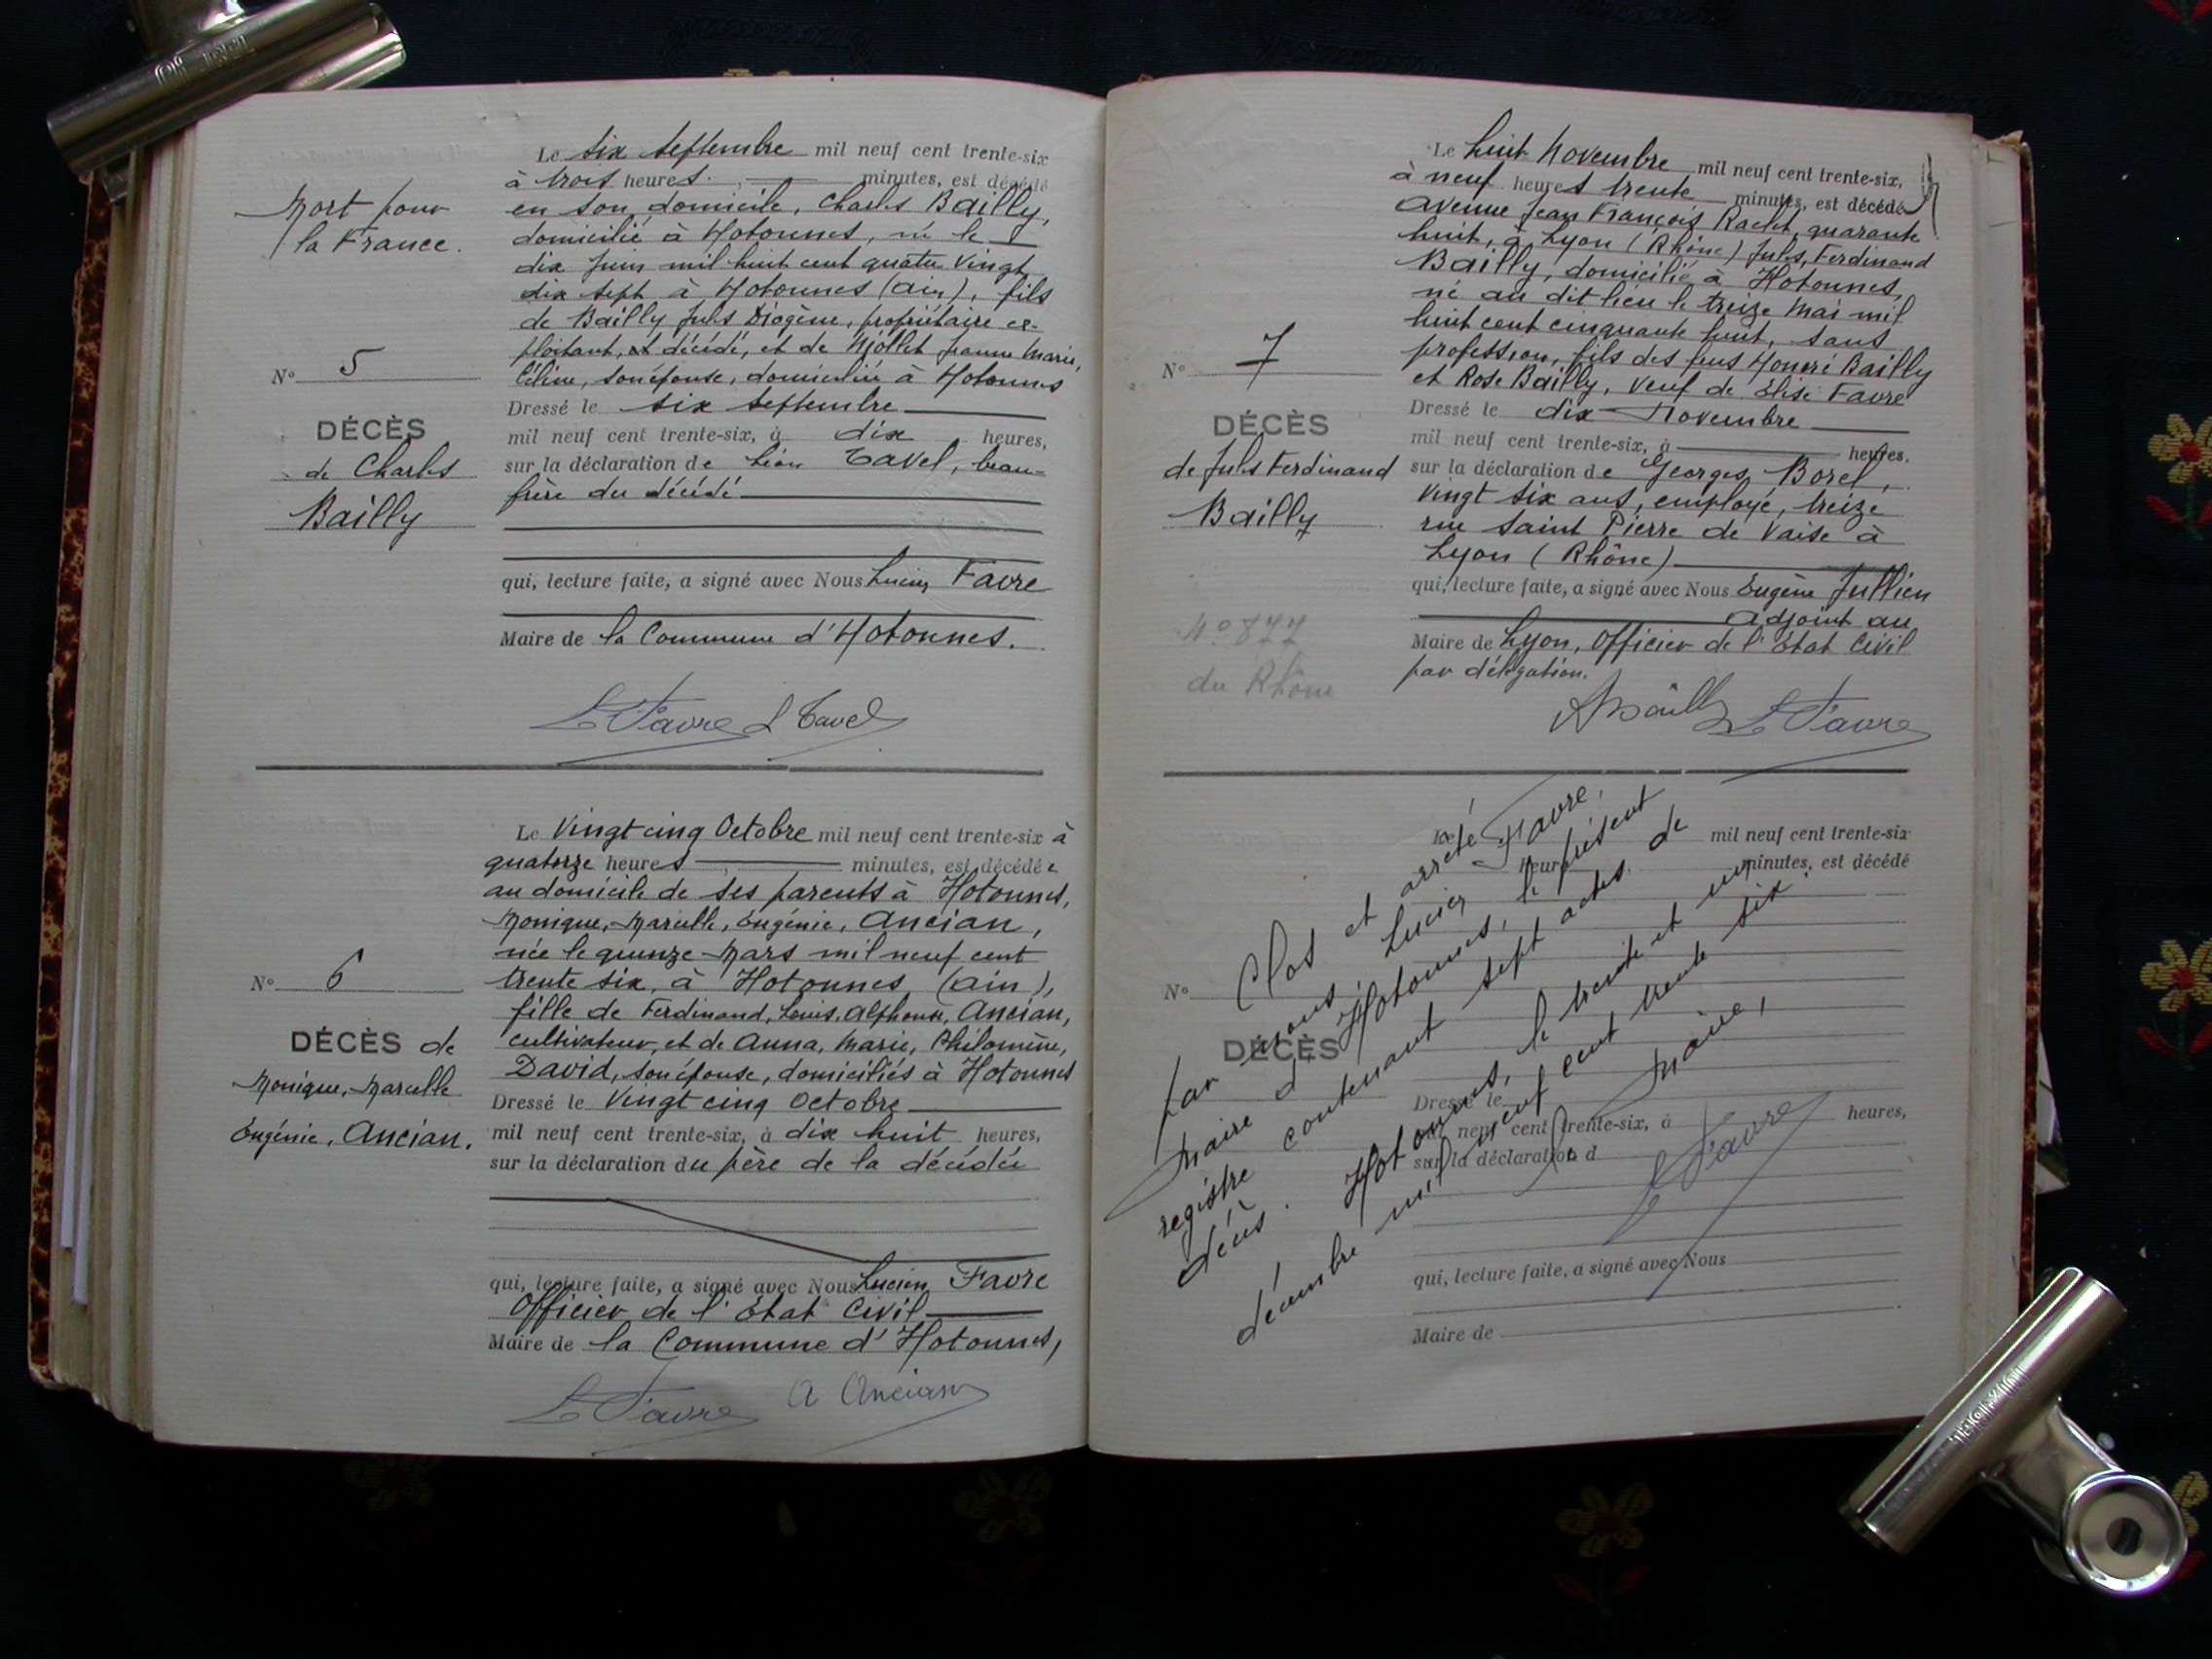 Mort pour
la France.
N° 5
DÉCÈS
de Charles
Bailly
Le six Septembre mil neuf cent trente-six
à trois heures minutes, est décédé
en son domicile, Charles Bailly,
domicilié à Hotonnes, né le
dix Juin mil huit cent quatre vingt
dix sept à Hotonnes (Ain), fils
de Bailly Jules Diogène, propriétaire ex-
ploitant, décédé, et de Mollet Jeanne Marie,
Céline, son épouse, domiciliée à Hotonnes
Dressé le six Septembre
mil neuf cent trente-six, à dix heures,
sur la déclaration de Léon Tavel, beau-
frère du décédé
qui, lecture faite, a signé avec Nous Lucien Favre
Maire de la Commune d'Hotonnes.
L Favre L Tavel
N° 6
DÉCÈS de
Monique, Marcelle
Eugénie, Ancian.
Le Vingt cinq Octobre mil neuf cent trente-six à
quatorze heures minutes, est décédée
au domicile de ses parents à Hotonnes,
Monique, Marcelle, Eugénie, Ancian,
née le quinze Mars mil neuf cent
trente six, à Hotonnes (Ain),
fille de Ferdinand, Louis, Alphonse, Ancian,
cultivateur, et de Anna, Marie, Philomène,
David, son épouse, domiciliés à Hotonnes
Dressé le Vingt cinq Octobre
mil neuf cent trente-six, à dix huit heures,
sur la déclaration du père de la décédée
qui, lecture faite, a signé avec Nous Lucien Favre
Officier de l'État Civil
Maire de la Commune d'Hotonnes,
L Favre A Ancian
N° 7
DÉCÈS
de Jules Ferdinand
Bailly
N° 877
du Rhône
Le huit Novembre mil neuf cent trente-six,
à neuf heures trente minutes, est décédé
Avenue Jean François Raclet, quarante
huit, à Lyon (Rhône) Jules, Ferdinand
Bailly, domicilié à Hotonnes,
né au dit lieu le treize Mai mil
huit cent cinquante huit, sans
profession, fils des feus Honoré Bailly
et Rose Bailly, veuf de Elise Favre
Dressé le dix Novembre
mil neuf cent trente-six, à heures,
sur la déclaration de Georges Borel,
Vingt six ans, employé, treize
rue Saint Pierre de Vaise à
Lyon (Rhône)
qui, lecture faite, a signé avec Nous Eugène Jullien
Adjoint au
Maire de Lyon, Officier de l'État Civil
par délégation.
L Favre
Clos et arrêté
par nous, Lucien Favre,
Maire d'Hotonnes, le présent
registre contenant sept actes de
décès. Hotonnes, le trente et un
décembre mil neuf cent trente six.
Maire,
L Favre
N°
DÉCÈS
Le mil neuf cent trente-six
heures minutes, est décédé
Dressé le
mil neuf cent trente-six, à heures,
sur la déclaration d
qui, lecture faite, a signé avec Nous
Maire de